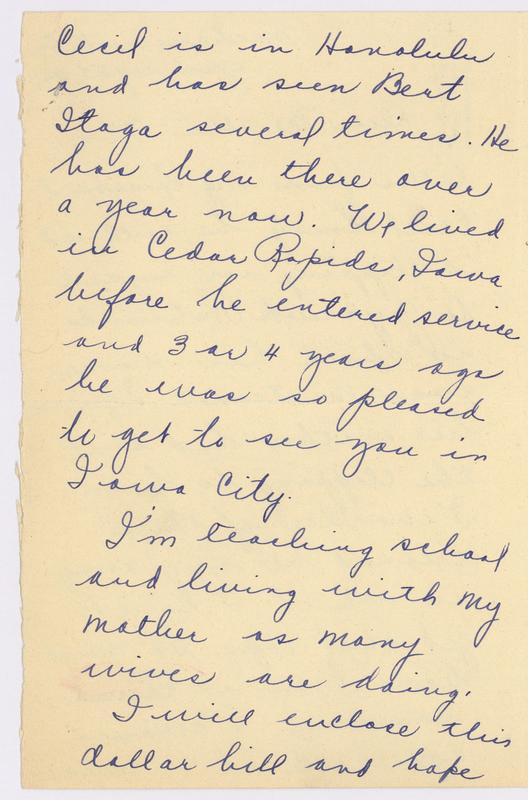 Cecil is in Honolulu
and has seen Bert
Itoga several times. He
has been there over
a year now. We lived
in Cedar Rapids, Iowa
before he entered service
and 3 or 4 years ago
he was so pleased
to get to see you in
Iowa City.
I'm teaching school
and living with my
mother as many
wives are doing.
I will enclose this
dollar bill and hope